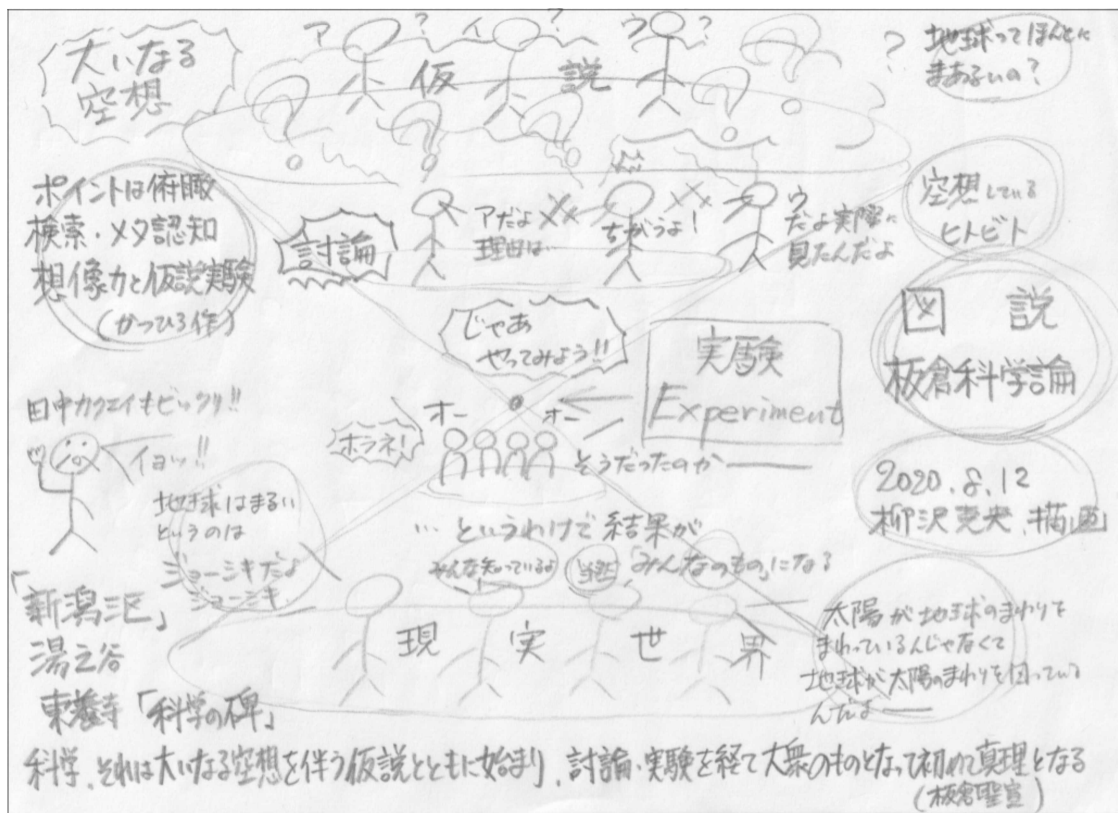 大いなる
空想
ア ? イ ? ウ ?
仮 説
? 地球ってほんとに
まあるいの?
ポイントは俯瞰
検索・メタ認知
想像力と仮説実験
(かつひろ作)
討論
アだよ
理由は…
ちがうよ!
ウ
だよ実際に
見たんだよ
空想している
ヒトビト
じゃあ
やってみよう!!
実験
Experiment
図 説
板倉科学論
田中カクエイもビックリ!!
イヨッ!!
ホラネ!
オー オー
そうだったのか――
2020.8.12
地球はまるい
というのは
ジョーシキだよ
ジョーシキ
…というわけで結果が
みんな知っているよ
「みんなのもの」になる
現 実 世 界
太陽が地球のまわりを
まわっているんじゃなくて
地球が太陽のまわりを回っている
んだよ――
「新潟三区」
湯之谷
東養寺「科学の碑」
科学、それは大いなる空想を伴う仮説とともに始まり、討論・実験を経て大衆のものとなって初めて真理となる
(板倉聖宣)